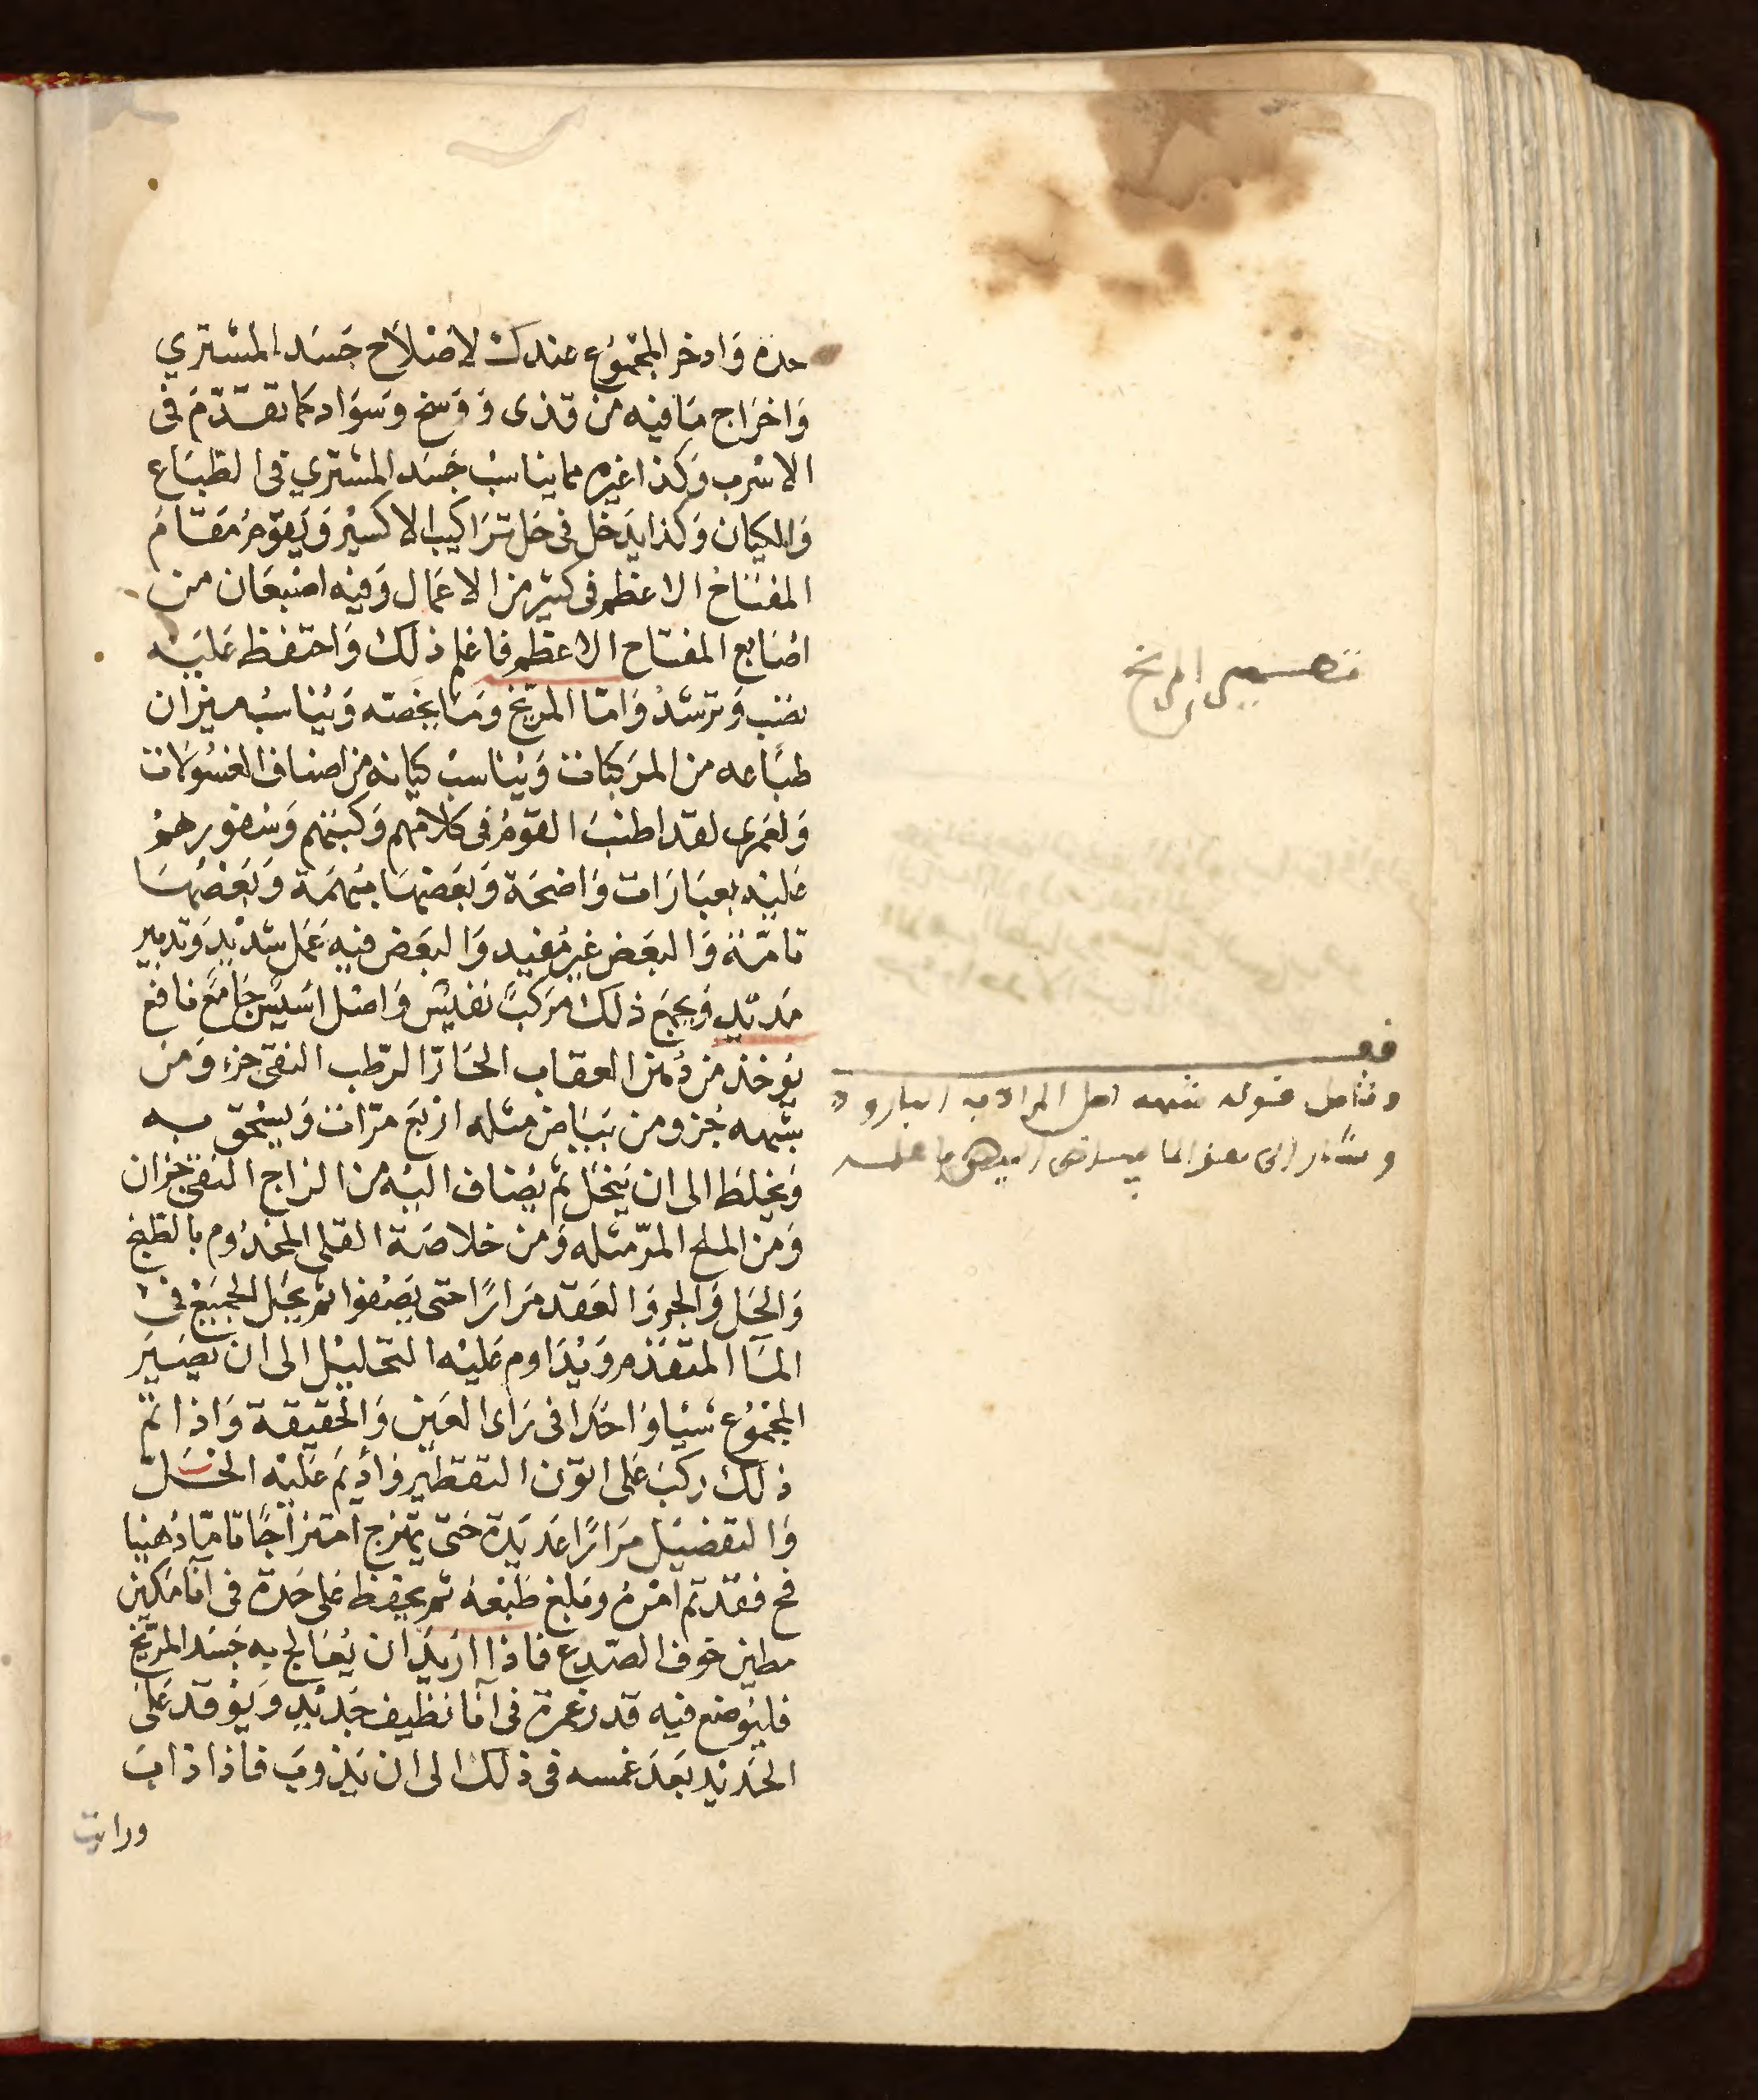 حده وَادخر المجموُع عندك لاصْلاَح جَسَد المشتري
وَاخرَاج مَافيه من قذى وَوَسَخ وسَوَاد كما تقدّمَ فى
الاسْرب وكذا غيره مما يناسبْ جَسَد المشتري فى الطبَاع
وَالكيان وَكذا يدَخل فى حَل تَرَاكيب الاكسيْر وَيَقوّمرُ مَقَامَ
المفتَاح الاعظم فى كثير من الاعمَال وَفيه اصْبعَان من
اصَابع المفتاح الاعظم فاعلم ذلك وَاحتفظ عَليَه
تصَب وَترشدْ وَامّا المرّيخ وَمَا يخصّه وَيُناسبُ ميزان
طبَاعه من المرَكبات وَيُناسبْ كيانه من اصناف الغسُولاَت
وَلعَمرى لقد اطنبَ القومُ فى كلامهم وَكتبهم وَسْفورهمْ
عَليْه بعبَارَات وَاضحَة وَبَعضهَا مبْهَمَة وَبَعْضُهَا
تامّة وَالبعَض غير مُفيد وَالبعَض فيه عَمَل شديْد وَتدبير
مَديْد وَيجمَع ذلك مرَكبً نَفيسْ وَاصْل اسَيسْ جَامعَ نافع
يُوخذ من دُهنْ العقاب الحَارّ الرّطب النقى جزء وَمن
شبهه جُزو من بَيَاض مثله ارْبَعَ مَرّات وَيسْحق به
وَيخلَط الى ان يَنحَلّ ثم يُضاف اليْه من الزاج النقى جزان
وَمن الملح المرّ مثله وَمن خلاصَة القلى المخدُوم بالطبخ
وَالحَل وَالجر وَالعَقد مرَارًا حتى يَصْفوا ثم يحَل الجميَع فى
المَاء المتقدّم وَيُدَاوم عَليْه التحليْل الى ان يصَيَر
المجمُوع شيْا وَاحدًا فى رَاى العَين وَالحقيقة وَاذا تمّ
ذلك ركبَ عَلى اتوّن التقطير وَأديَم عَليْه الحَــلّ
وَالتفصيَل مرَارًا عَديَدة حَتى يمتزج امتزاجًا تامّا دُهنيا
فح فقد تم امْرهُ وَبلغ طبْعهُ ثم يحفظ عَلى حَدة فى آنا مَكين
مطين خوف الصّدع فاذا ارَيدَ ان يُعَالج به جَسَد المرّيخ
فليُوضع فيه قدر غمرة فى آنا نظيف جَديْد وَيوْقد عَلى
الحَديْد بَعدَ غمسه فى ذلك الى ان يَذوبَ فاذا ذابَ
ورايت
المريخ
فقــ
وتامل قوله شبهه اصل المراد به البارود